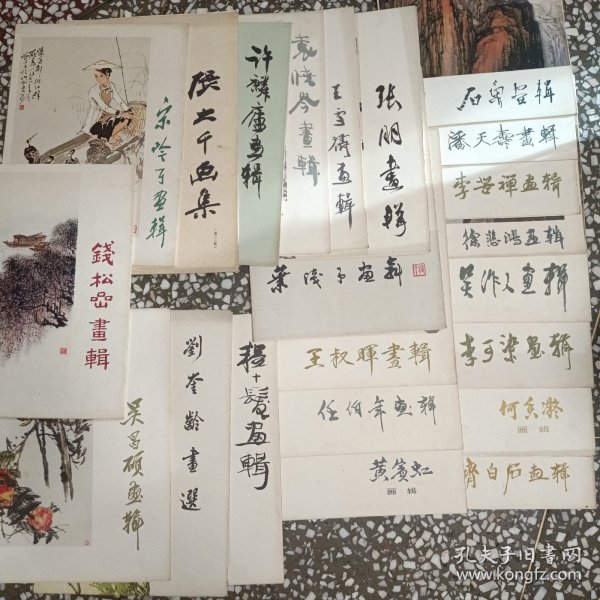 宋吟可画辑
張大千画集
许麟庐画辑
袁晓岑畫輯
王雪涛画輯
张朋畫輯
石鲁画辑
潘天壽畫輯
李苦禅画辑
徐悲鸿画辑
吴作人画辑
李可染画辑
何香凝
画辑
齐白石画辑
葉浅予画輯
王叔暉畫輯
任伯年画辑
黄賓虹
画辑
錢松嵒畫輯
吴昌硕画辑
劉奎齡畫選
程十髮画輯
孔夫子旧书网
www.kongfz.com